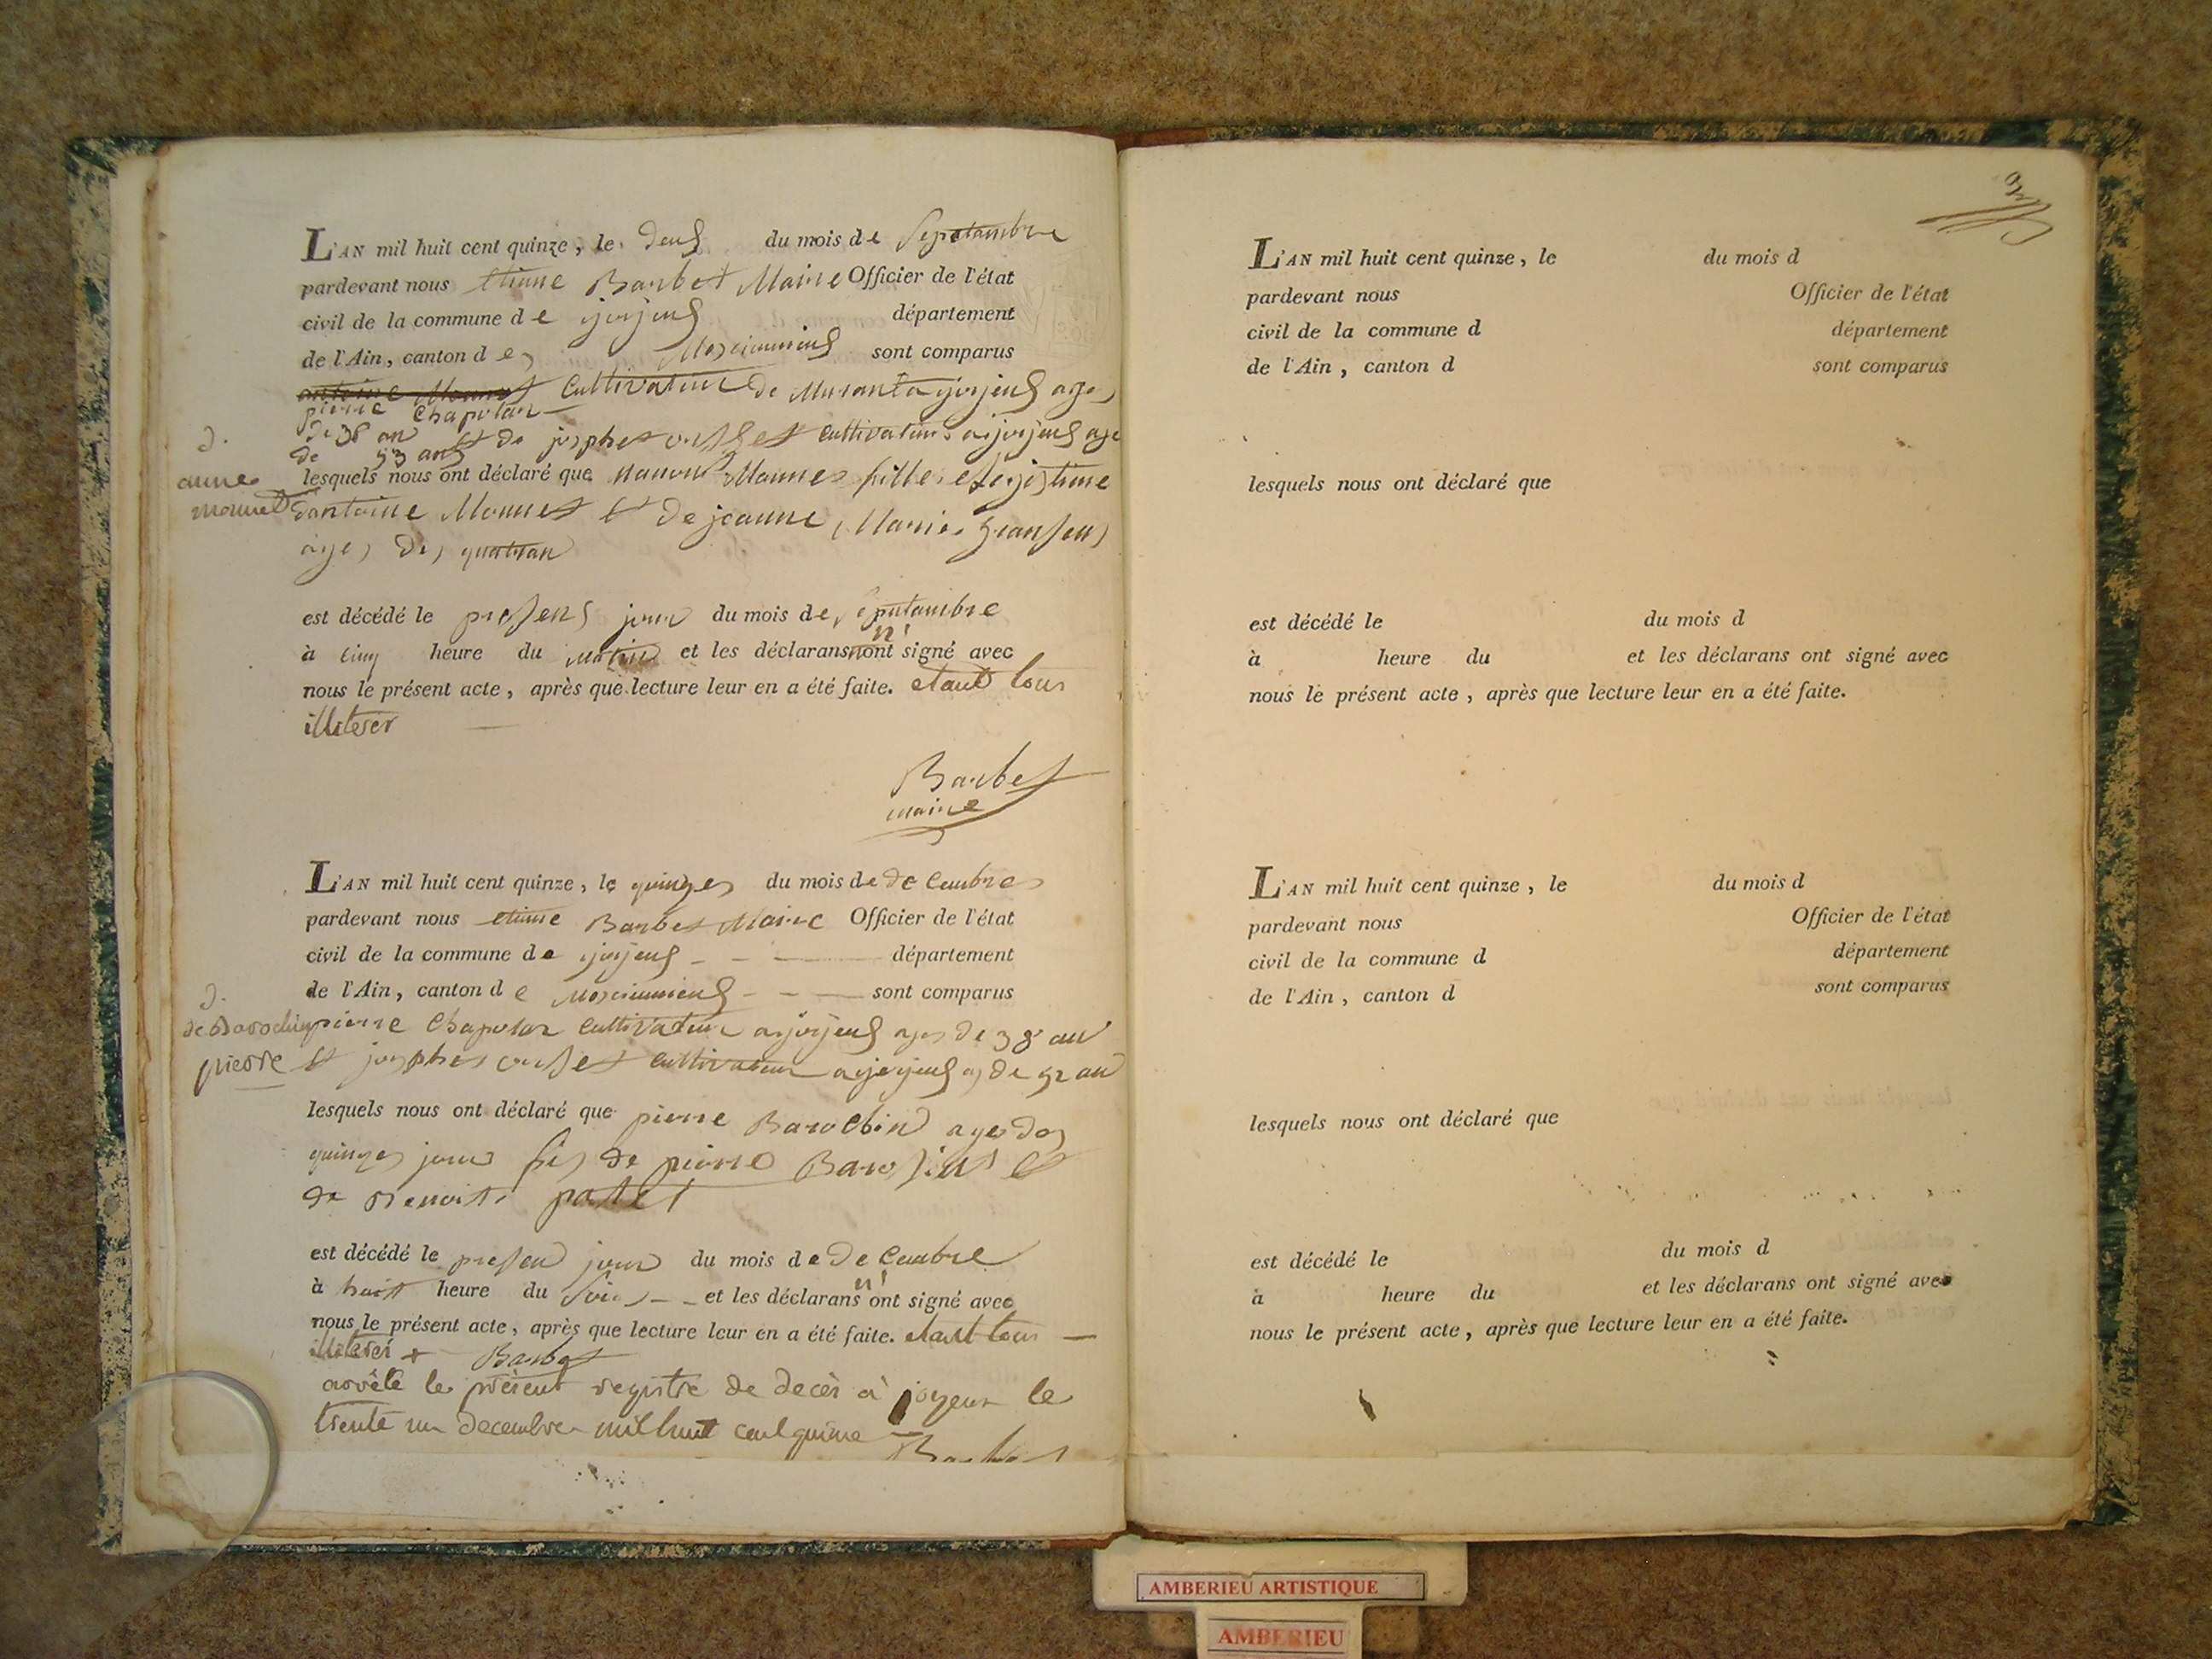 L'AN mil huit cent quinze, le deus du mois de Septambre
pardevant nous etiene Barbet Maire Officier de l'état
civil de la commune de département
de l'Ain, canton de sont comparus
antoine Monnet Cultivateur de age
pierre Chapolar
de 38 an et de cultivateur age
de 53 ans
D.
anne
monnet
lesquels nous ont déclaré que Monnet fille
dantoine Monnet et de jeanne Marie
age de quatran
est décédé le presens jour du mois de Septambre
à cinq heure du matin et les déclarans n'ont signé avec
nous le présent acte, après que lecture leur en a été faite. etant tous
illiterer
Barbet
maire
L'AN mil huit cent quinze, le quinze du mois de decembre
pardevant nous etiene Barbet Maire Officier de l'état
civil de la commune de département
de l'Ain, canton de sont comparus
D.
de Barochin
pierre
pierre Chapolar Cultivateur age de 38 an
et cultivateur de 52 an
lesquels nous ont déclaré que pierre Barochin age de
quinze jours fis de pierre et
de Benoite
est décédé le presen jour du mois de decembre
à huit heure du soir et les déclarans n'ont signé avec
nous le présent acte, après que lecture leur en a été faite. etant tous
illiterer + Barbet
arrêté le présent registre de decès à joyeux le
trente un decembre mil huit cent quinze
Barbet
L'AN mil huit cent quinze, le du mois d
pardevant nous Officier de l'état
civil de la commune d département
de l'Ain, canton d sont comparus
lesquels nous ont déclaré que
est décédé le du mois d
à heure du et les déclarans ont signé avec
nous le présent acte, après que lecture leur en a été faite.
L'AN mil huit cent quinze, le du mois d
pardevant nous Officier de l'état
civil de la commune d département
de l'Ain, canton d sont comparus
lesquels nous ont déclaré que
est décédé le du mois d
à heure du et les déclarans ont signé avec
nous le présent acte, après que lecture leur en a été faite.
AMBERIEU ARTISTIQUE
AMBERIEU